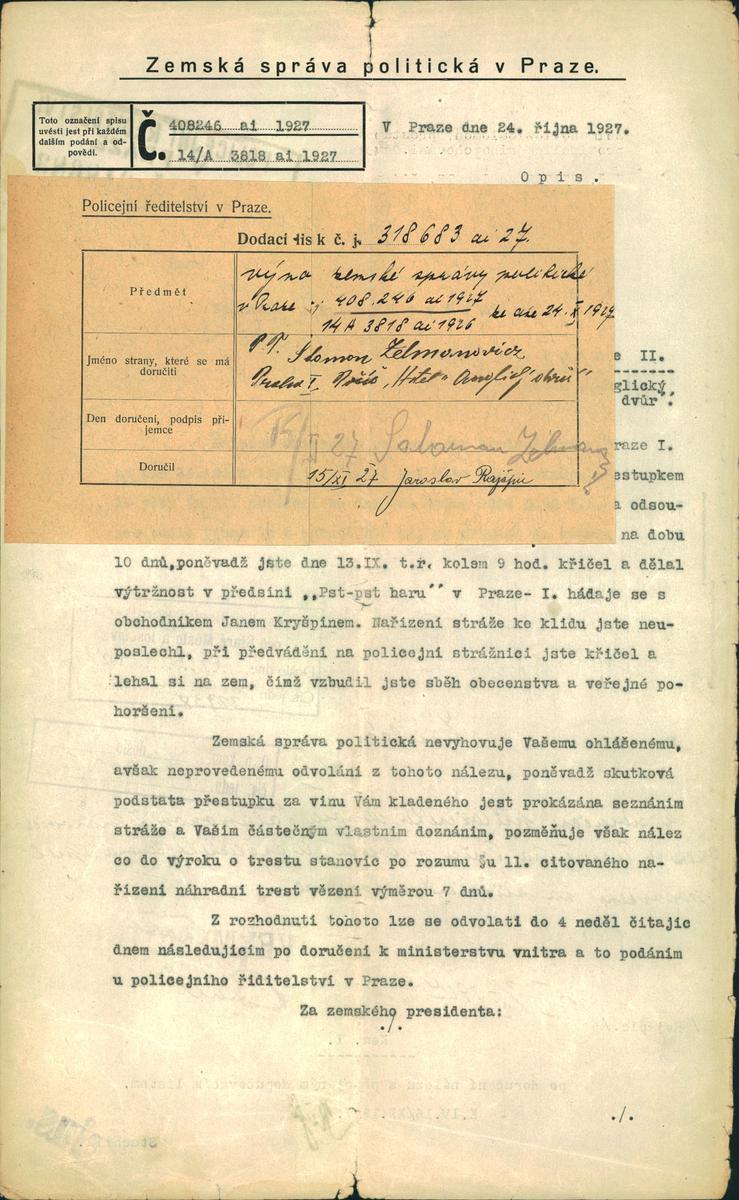 Zemská správa politická v Praze.
Toto označení spisu
uvésti jest při každém
dalším podání a od-
povědi.
Č. 408246 ai 1927
14/A 3818 ai 1927
V Praze dne 24. října 1927.
Opis.
Policejní ředitelství v Praze.
Dodací lísk č. j. 318683 ai 27.
Předmět
výno zemské správy politické
v Praze č. j. 408.246 ai 1927 ze dne 24. X 1927
14A 3818 ai 1926
Jméno strany, které se má
doručiti
P. T. Salomon Zelmanovicz
Praha I, Poříč, "Hotel" Anglický dvůr"
Den doručení, podpis pří-
jemce
15/XI 27 Salomon
Doručil
15/XI 27 Jaroslav
e II.
glický
dvůr".
raze I.
estupkem
a odsou-
na dobu
10 dnů,poněvadž jste dne 13.IX. t.r. kolem 9 hod. křičel a dělal
výtržnost v předsíni ,,Pst-pst baru" v Praze- I. hádaje se s
obchodníkem Janem Kryšpínem. Nařízení stráže ke klidu jste neu-
poslechl, při předvádění na policejní strážnici jste křičel a
lehal si na zem, čímž vzbudil jste sběh obecenstva a veřejné po-
horšení.
Zemská správa politická nevyhovuje Vašemu ohlášenému,
avšak neprovedenému odvolání z tohoto nálezu, poněvadž skutková
podstata přestupku za vinu Vám kladeného jest prokázána seznáním
stráže a Vaším částečným vlastním doznáním, pozměňuje však nález
co do výroku o trestu stanovíc po rozumu §u 11. citovaného na-
řízení náhradní trest vězení výměrou 7 dnů.
Z rozhodnutí tohoto lze se odvolati do 4 neděl čítajíc
dnem následujícím po doručení k ministerstvu vnitra a to podáním
u policejního řiditelství v Praze.
Za zemského presidenta:
./.
./.